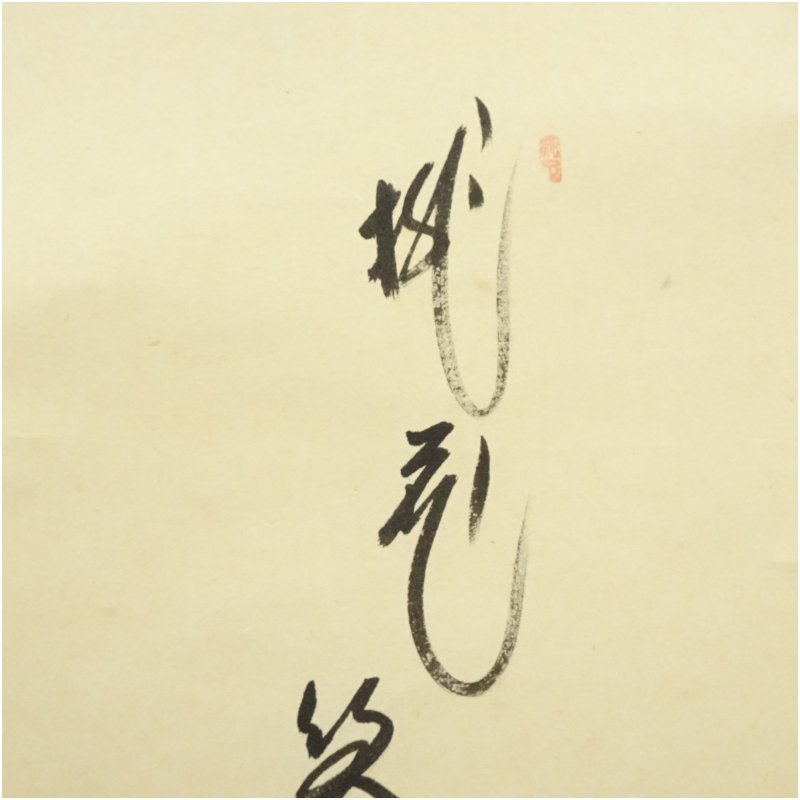 桃花笑